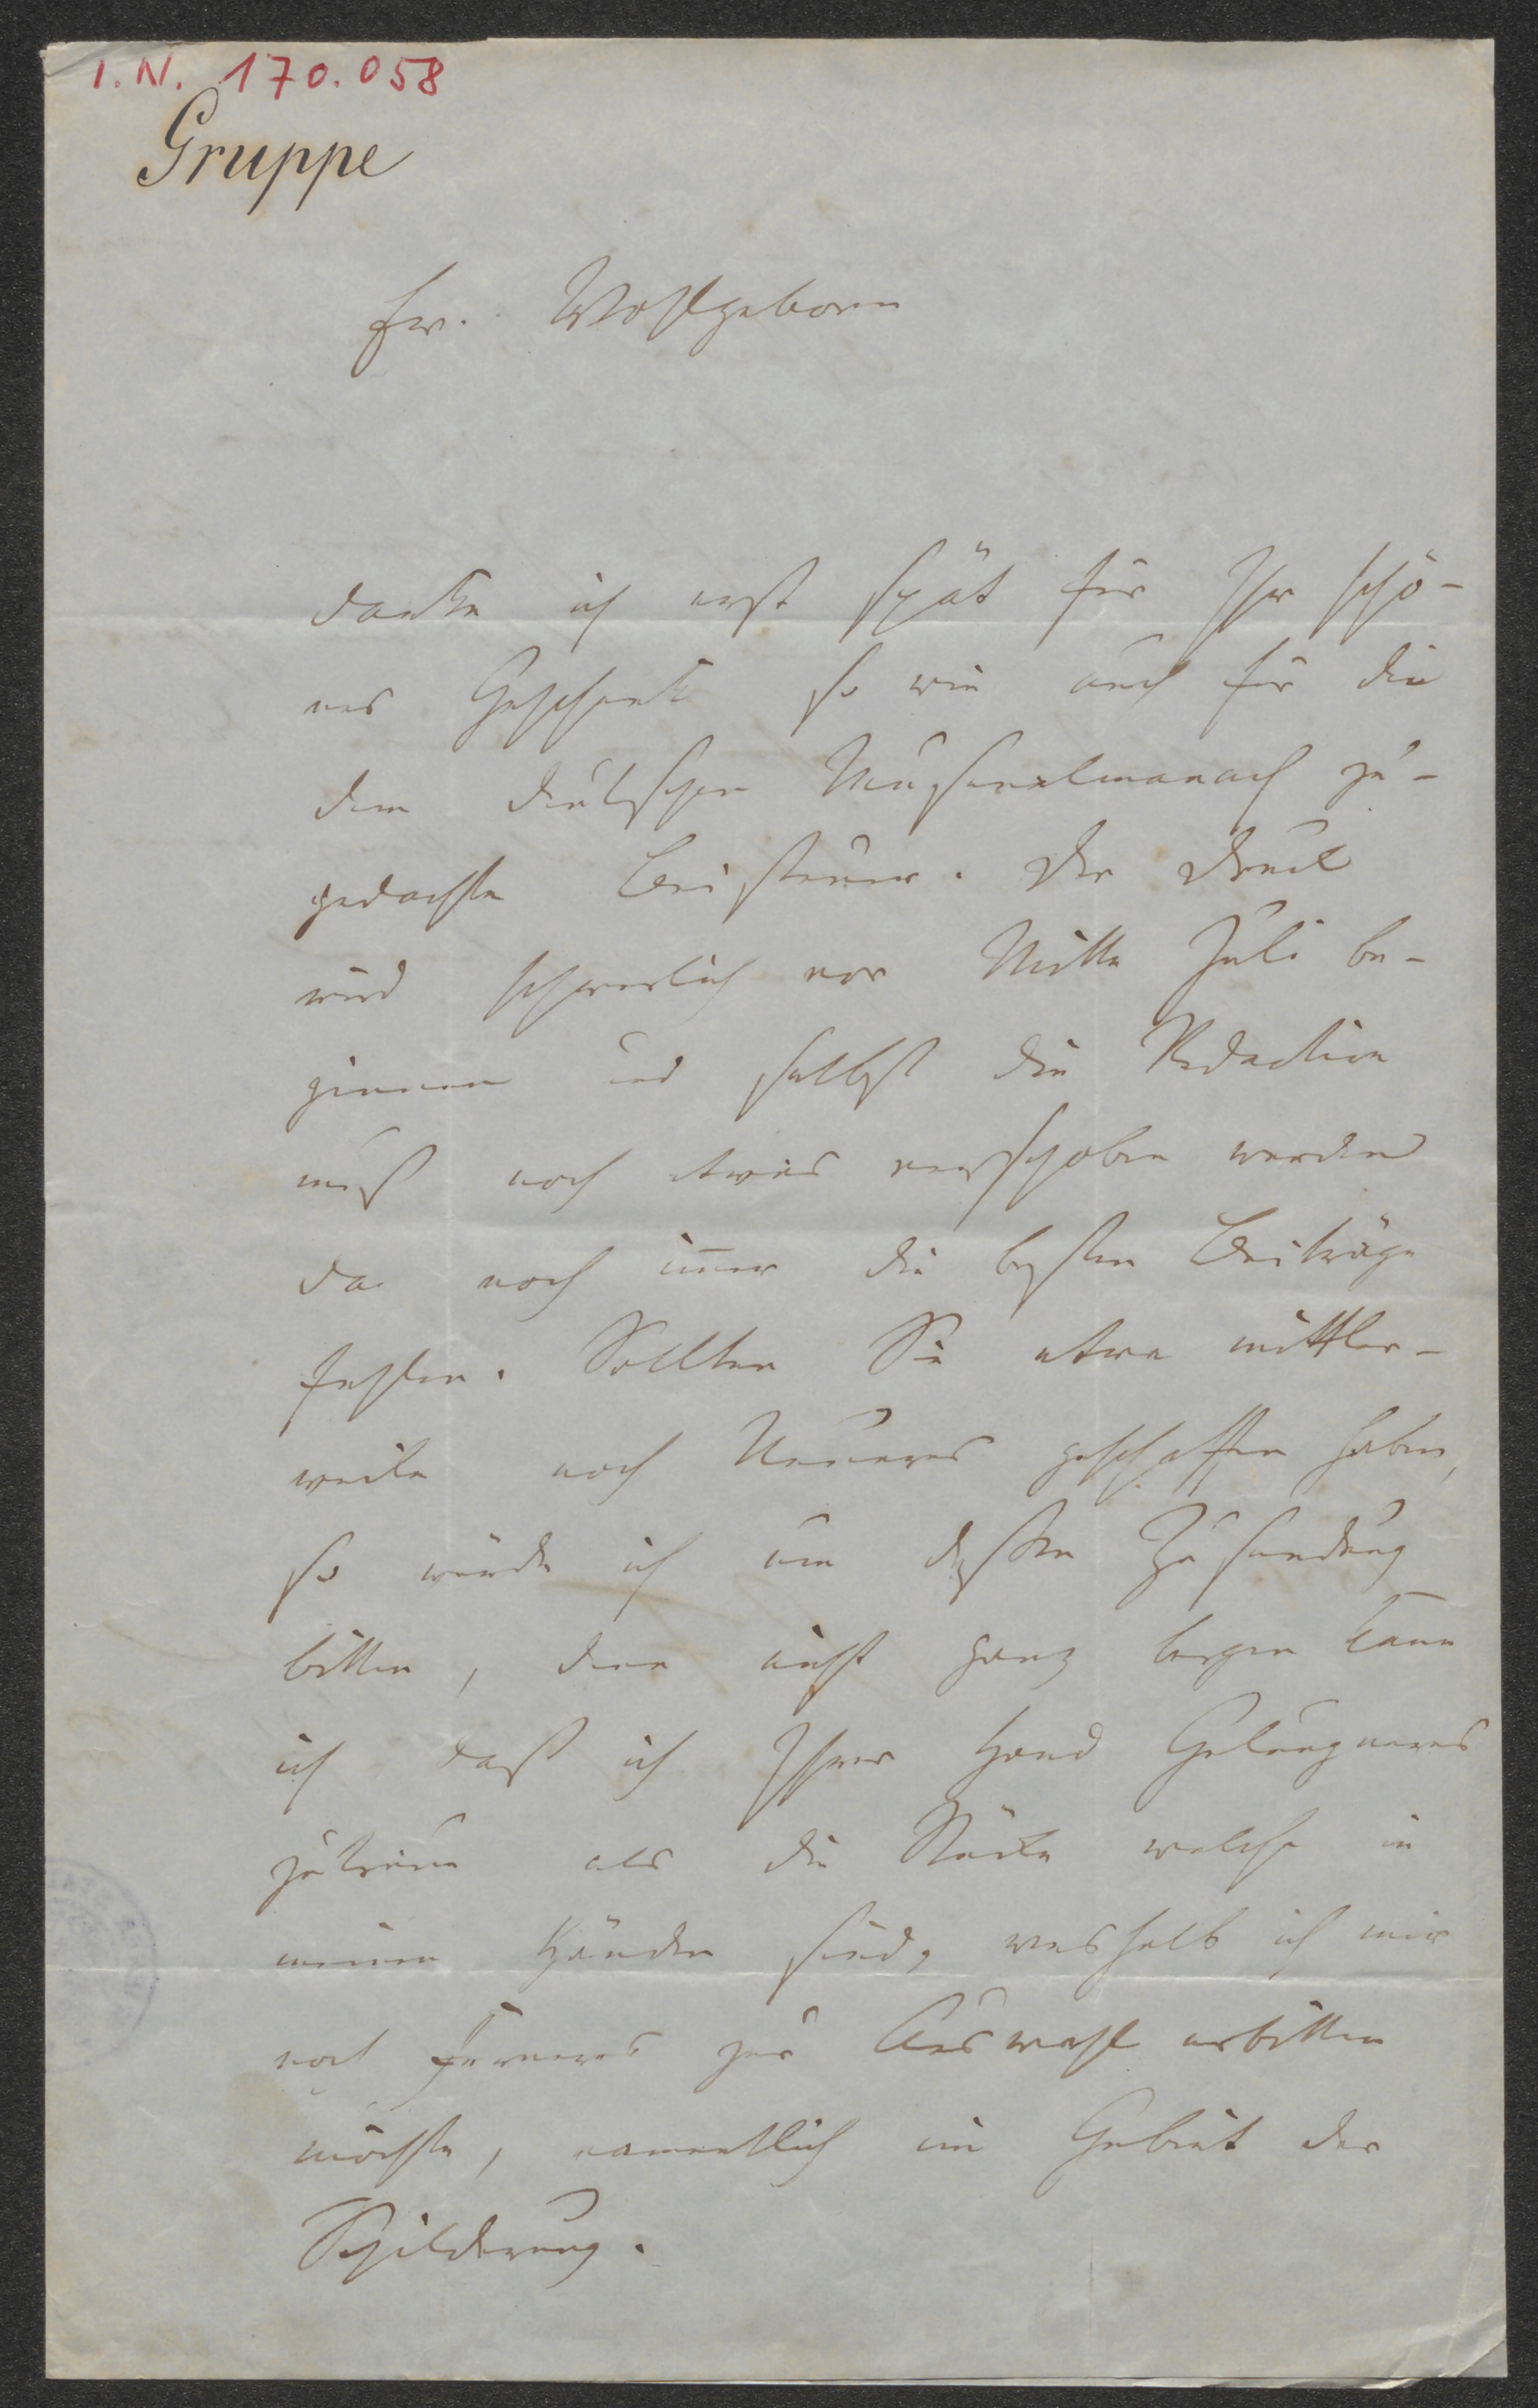 I. N. 170.058
Gruppe
Ew. Wohlgeboren
danke ich erst spät für Ihr schö-
nes Geschenk so wie auch für die
dem deutschen Musenalmanach zu-
gedachte Beisteuer. Der Druck
wird schwerlich vor Mitte Juli be-
ginnen und selbst die Redaction
muß noch etwas verschoben werden
da noch im̅er die besten Beiträge
fehlen. Sollten Sie etwa mittler-
weile noch Neueres geschaffen haben,
so würde ich um dessen Zusendung
bitten, denn nicht ganz bergen kann
ich daß ich Ihrer Hand Gelungneres
zutraue als die Stücke welche in
meinen Händen sind, weshalb ich mir
noch Ferneres zur Auswahl erbitten
möchte, namentlich im Gebiet der
Schilderung.